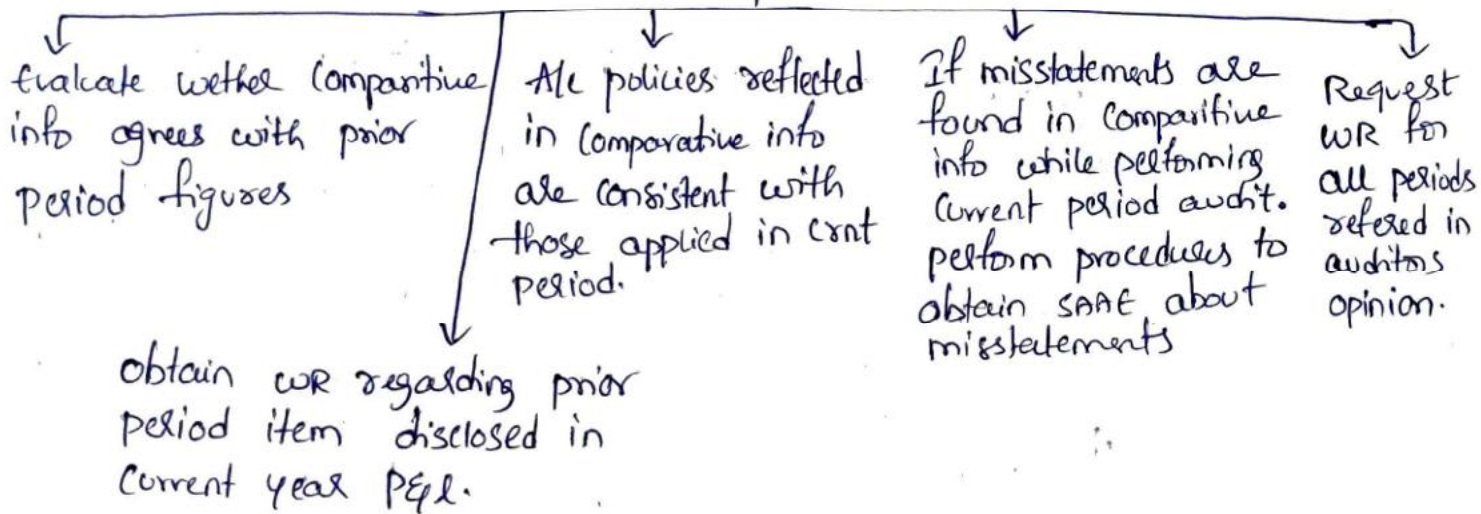 Evalcate wether Comparitive
info agrees with prior
period figures
A/c policies reflected
in Comparative info
are Consistent with
those applied in crnt
period.
If misstatements are
found in Comparitive
info while performing
Current period audit.
perform procedures to
obtain SAAE about
misstetements
Request
WR for
all periods
refered in
auditors
opinion.
obtain WR regarding prior
period item disclosed in
Current year P&L.